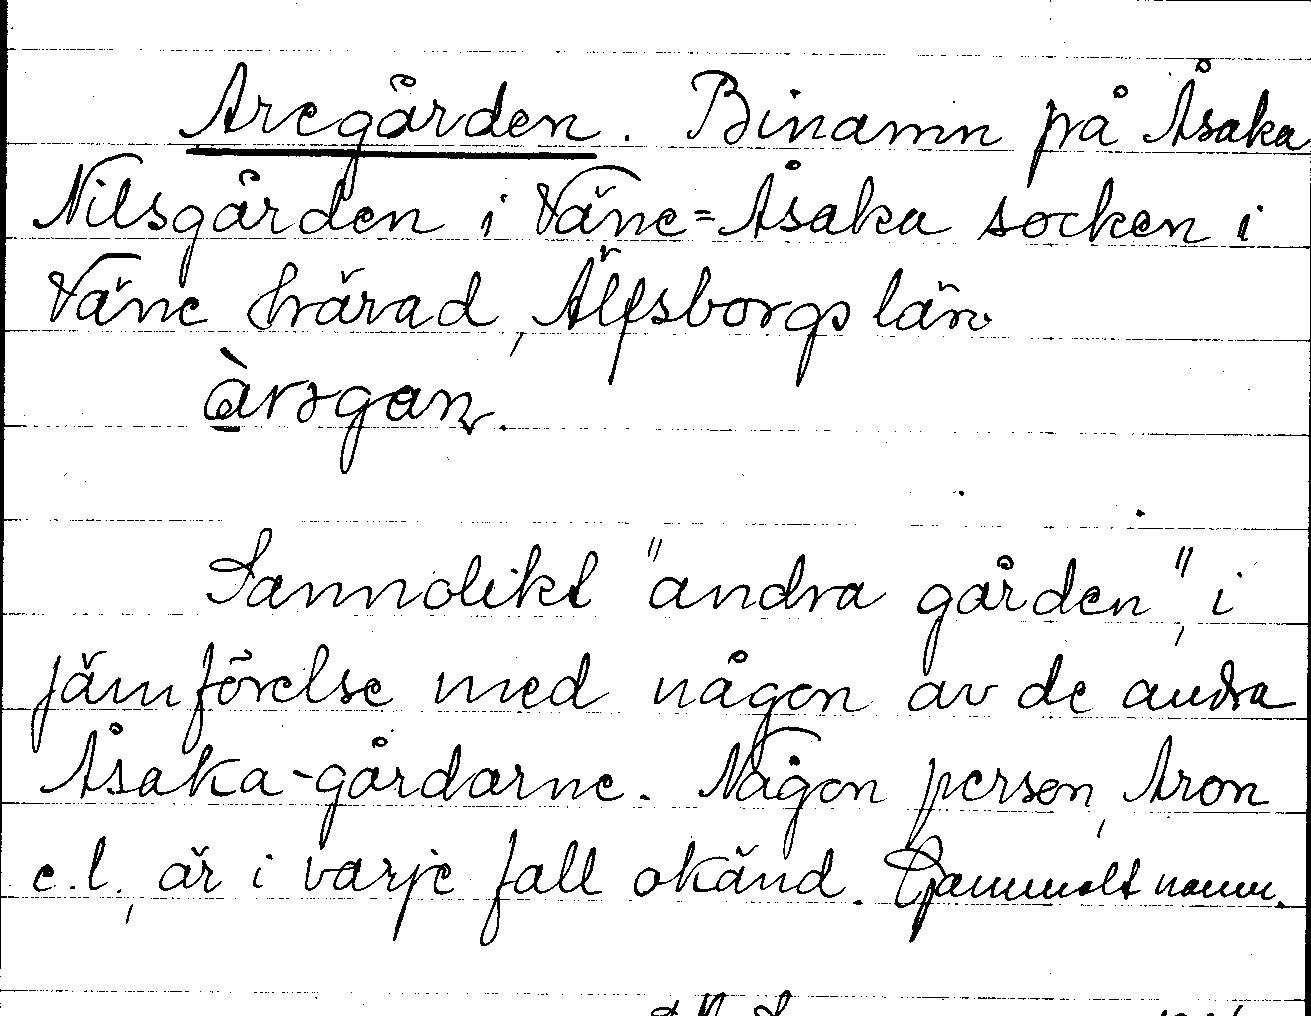 Aregården. Binamn på Åsaka
Nilsgården i Väne=Åsaka socken i
Väne härad, Älfsborgs län
àrsgan.
Sannolikt "andra gården", i
jämförelse med någon av de andra
Åsaka-gårdarne. Någon person, Aron
e.l., är i varje fall okänd. Gammalt namn.